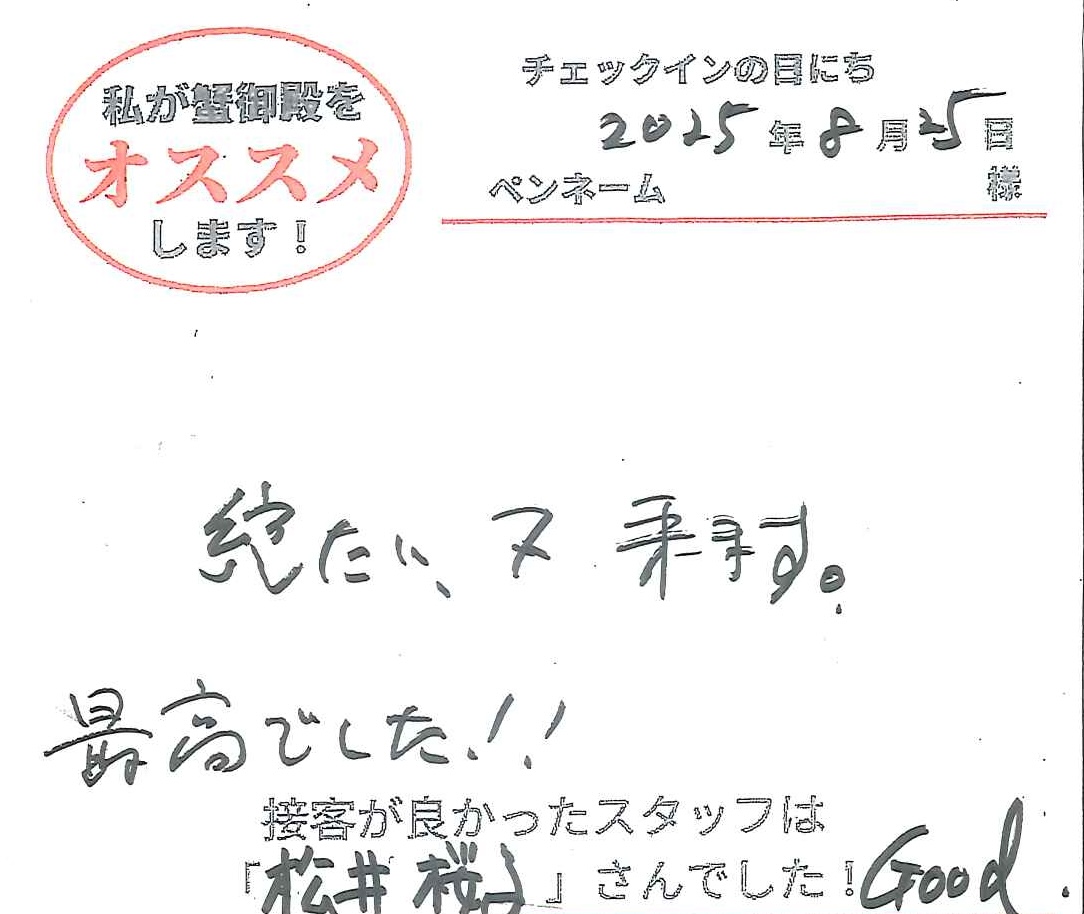 私が蟹御殿を
オススメ
します！
チェックインの日にち
2025年8月25日
ペンネーム 様
絶たい、又来ます。
最高でした！！
接客が良かったスタッフは
「松井桜子」さんでした！Good.